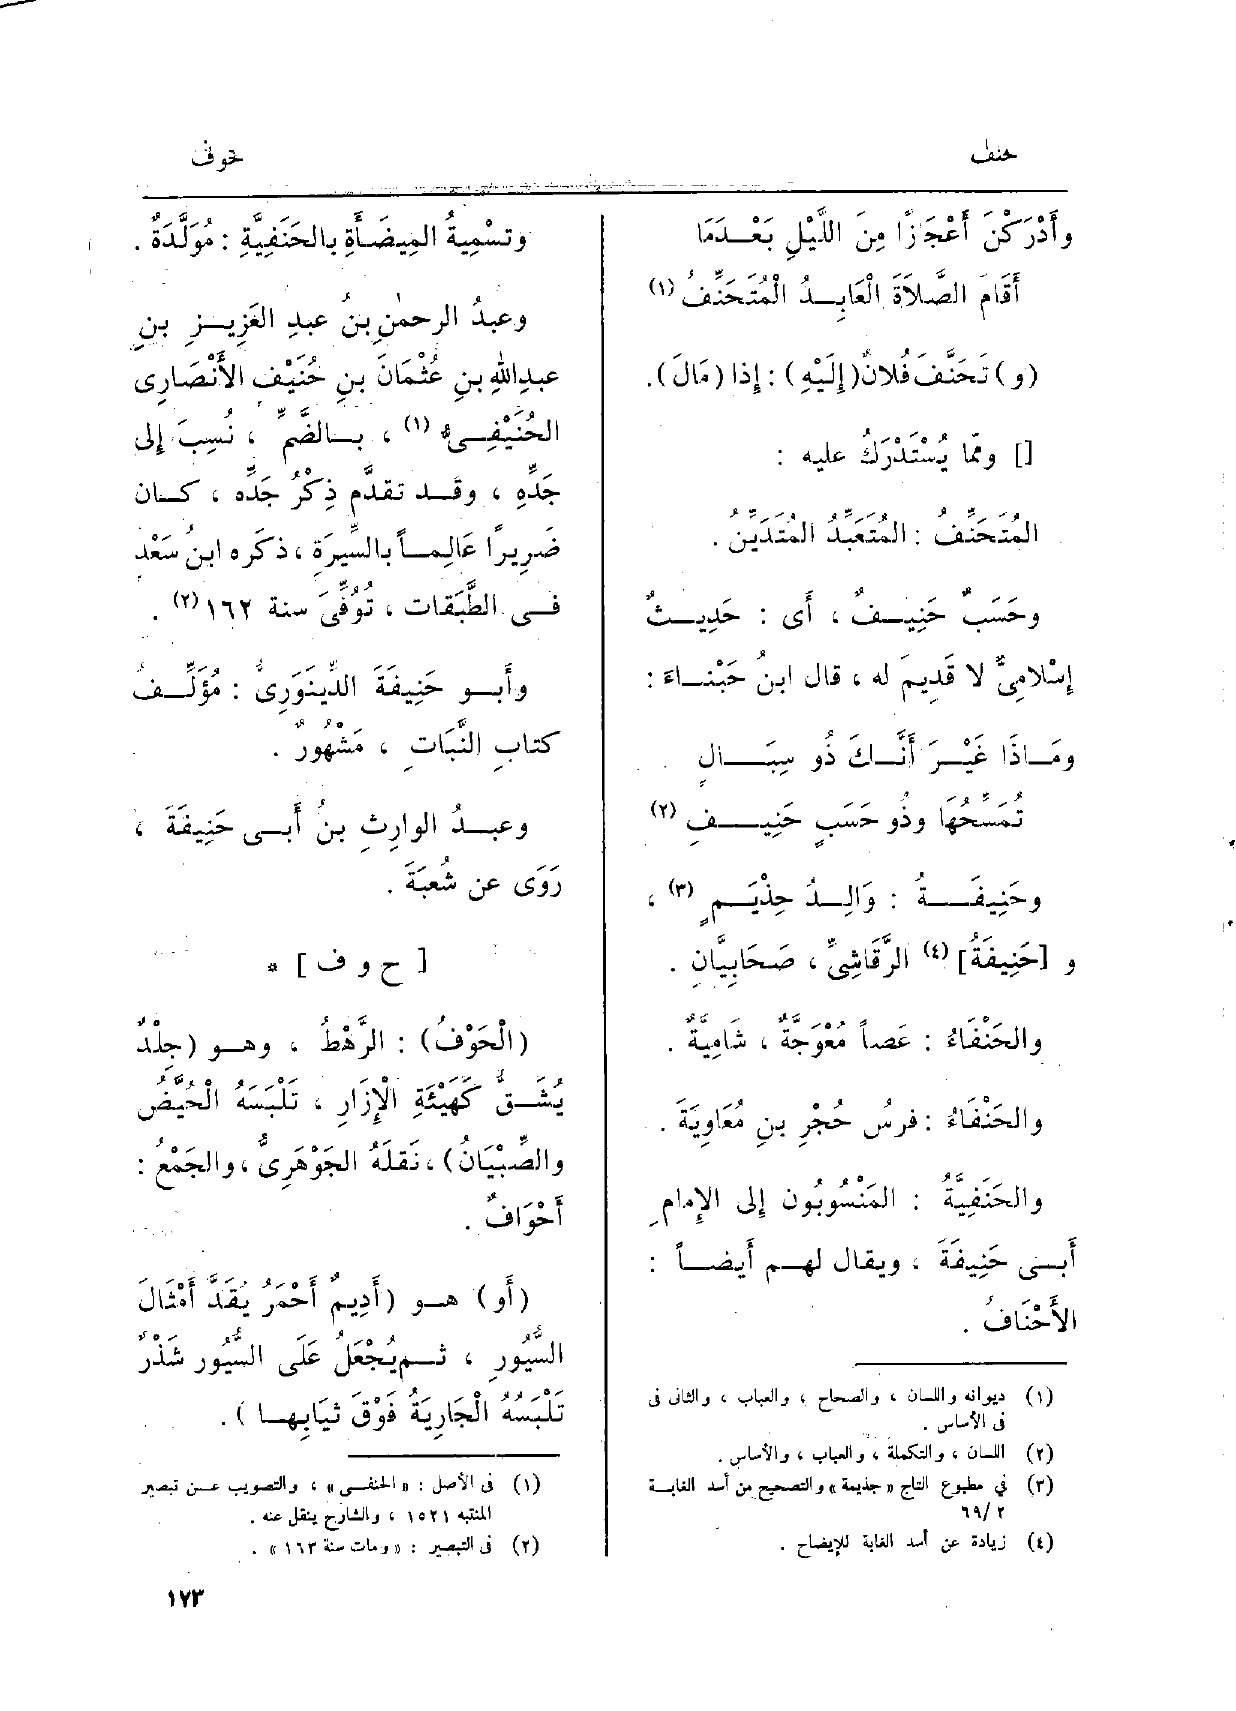 حنف
حوف
وأَدْرَكْنَ أَعْجَازًا مِنَ اللَّيْلِ بَعْدَمَا
أَقَامَ الصَّلاَةَ الْعَابِدُ الْمُتَحَنِّفُ (١)
(و) تَحَنَّفَ فُلانٌ (إِلَيْهِ) : إذا (مَالَ) .
[] ومّما يُسْتَدْرَكُ عليه :
المُتَحَنِّفُ : المُتَعَبِّدُ المُتَدَيِّن .
وحَسَبٌ حَنِيفٌ ، أَى : حَدِيثٌ
إِسْلامِىٌّ لا قَدِيمَ له ، قال ابنُ حَبْنَاءَ :
ومَاذَا غَيْرَ أَنَّكَ ذُو سِبَالٍ
تُمَسِّحُهَا وذُو حَسَبٍ حَنِيفِ (٢)
وحَنِيفَةُ : وَالِدُ حِذْيَمٍ (٣) ،
و [حَنِيفَةُ] (٤) الرَّقَاشِىُّ ، صَحَابِيَّانِ .
والحَنْفَاءُ : عَصاً مُعْوَجَّةٌ ، شامِيَّةٌ .
والحَنْفَاءُ : فرسُ حُجْرِ بنِ مُعَاوِيَةَ .
والحَنَفِيَّةُ : المَنْسُوبُون إلى الإمامِ
أبى حَنِيفَةَ ، ويقال لهم أيضاً :
الأَحْنَافُ .
(١) ديوانه واللسان ، والصحاح ، والعباب ، والثانى فى
فى الأساس .
(٢) اللسان ، والتكملة ، والعباب ، والأساس .
(٣) في مطبوع التاج «جذيمة» والتصحيح من أسد الغابة
٦٩/٢
(٤) زيادة عن أسد الغابة للإيضاح .
وتسْمِيةُ المِيضَأَةِ بالحَنَفِيَّةِ : مُوَلَّدَةٌ .
وعبدُ الرحمٰنِ بنُ عبدِ العَزِيزِ بنِ
عبدِاللهِ بنِ عُثْمَانَ بنِ حُنَيْفٍ الأَنْصَارِى
الحُنَيْفِىُّ (١) ، بالضَّمِّ ، نُسِبَ إلى
جَدِّهِ ، وقد تقدَّم ذِكْرُ جَدِّه ، كان
ضَرِيرًا عَالِماً بالسِّيرَةِ ، ذكره ابنُ سَعْدٍ
فى الطَّبَقات ، تُوُفِّىَ سنة ١٦٢ (٢) .
وأبو حَنِيفَةَ الدِّينَوَرِىُّ : مُؤَلِّفُ
كتابِ النَّبَاتِ ، مَشْهُورٌ .
وعبدُ الوارِثِ بنُ أَبى حَنِيفَةَ ،
رَوَى عن شُعبَةَ .
[ ح و ف ] *
(الْحَوْفُ) : الرَّهْطُ ، وهو (جِلْدٌ
يُشَقُّ كَهَيْئَةِ الْإِزَارِ ، تَلْبَسَهُ الْحُيَّضُ
والصِّبْيَانُ) ، نَقَلَهُ الجَوْهَرِىُّ ، والجَمْعُ :
أَحْوَافٌ .
(أَو) هو (أَدِيمٌ أَحْمَرُ يُقَدُّ أَمْثَالَ
السُّيُورِ ، ثم يُجْعَلُ عَلَى السُّيُور شَذْرٌ
تَلْبَسُهُ الْجَارِيَةُ فَوْقَ ثيَابِها ) .
(١) فى الأصل : «الحنفى» ، والتصويب عن تبصير
المنتبه ١٥٢١ ، والشارح ينقل عنه .
(٢) فى التبصير : «ومات سنة ١٦٣» .
١٧٣